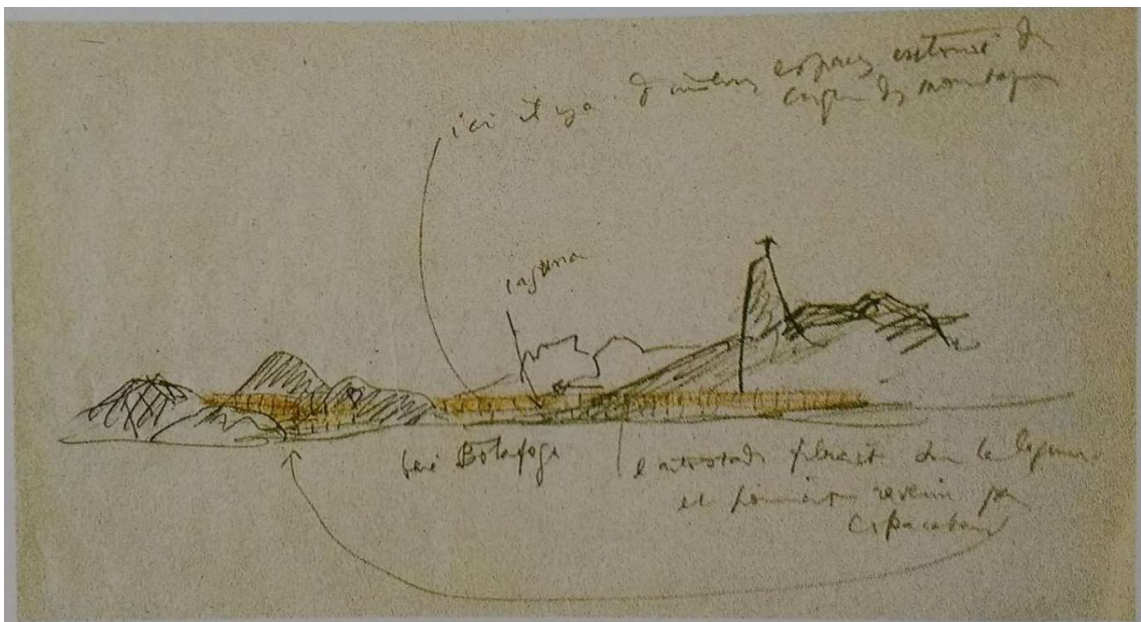 ici il y a d'autres espaces entre
corps des montagnes
laguna
baie Botafogo
l'autostrade filerait sur la lagune
et pourrait revenir par
Copacabana